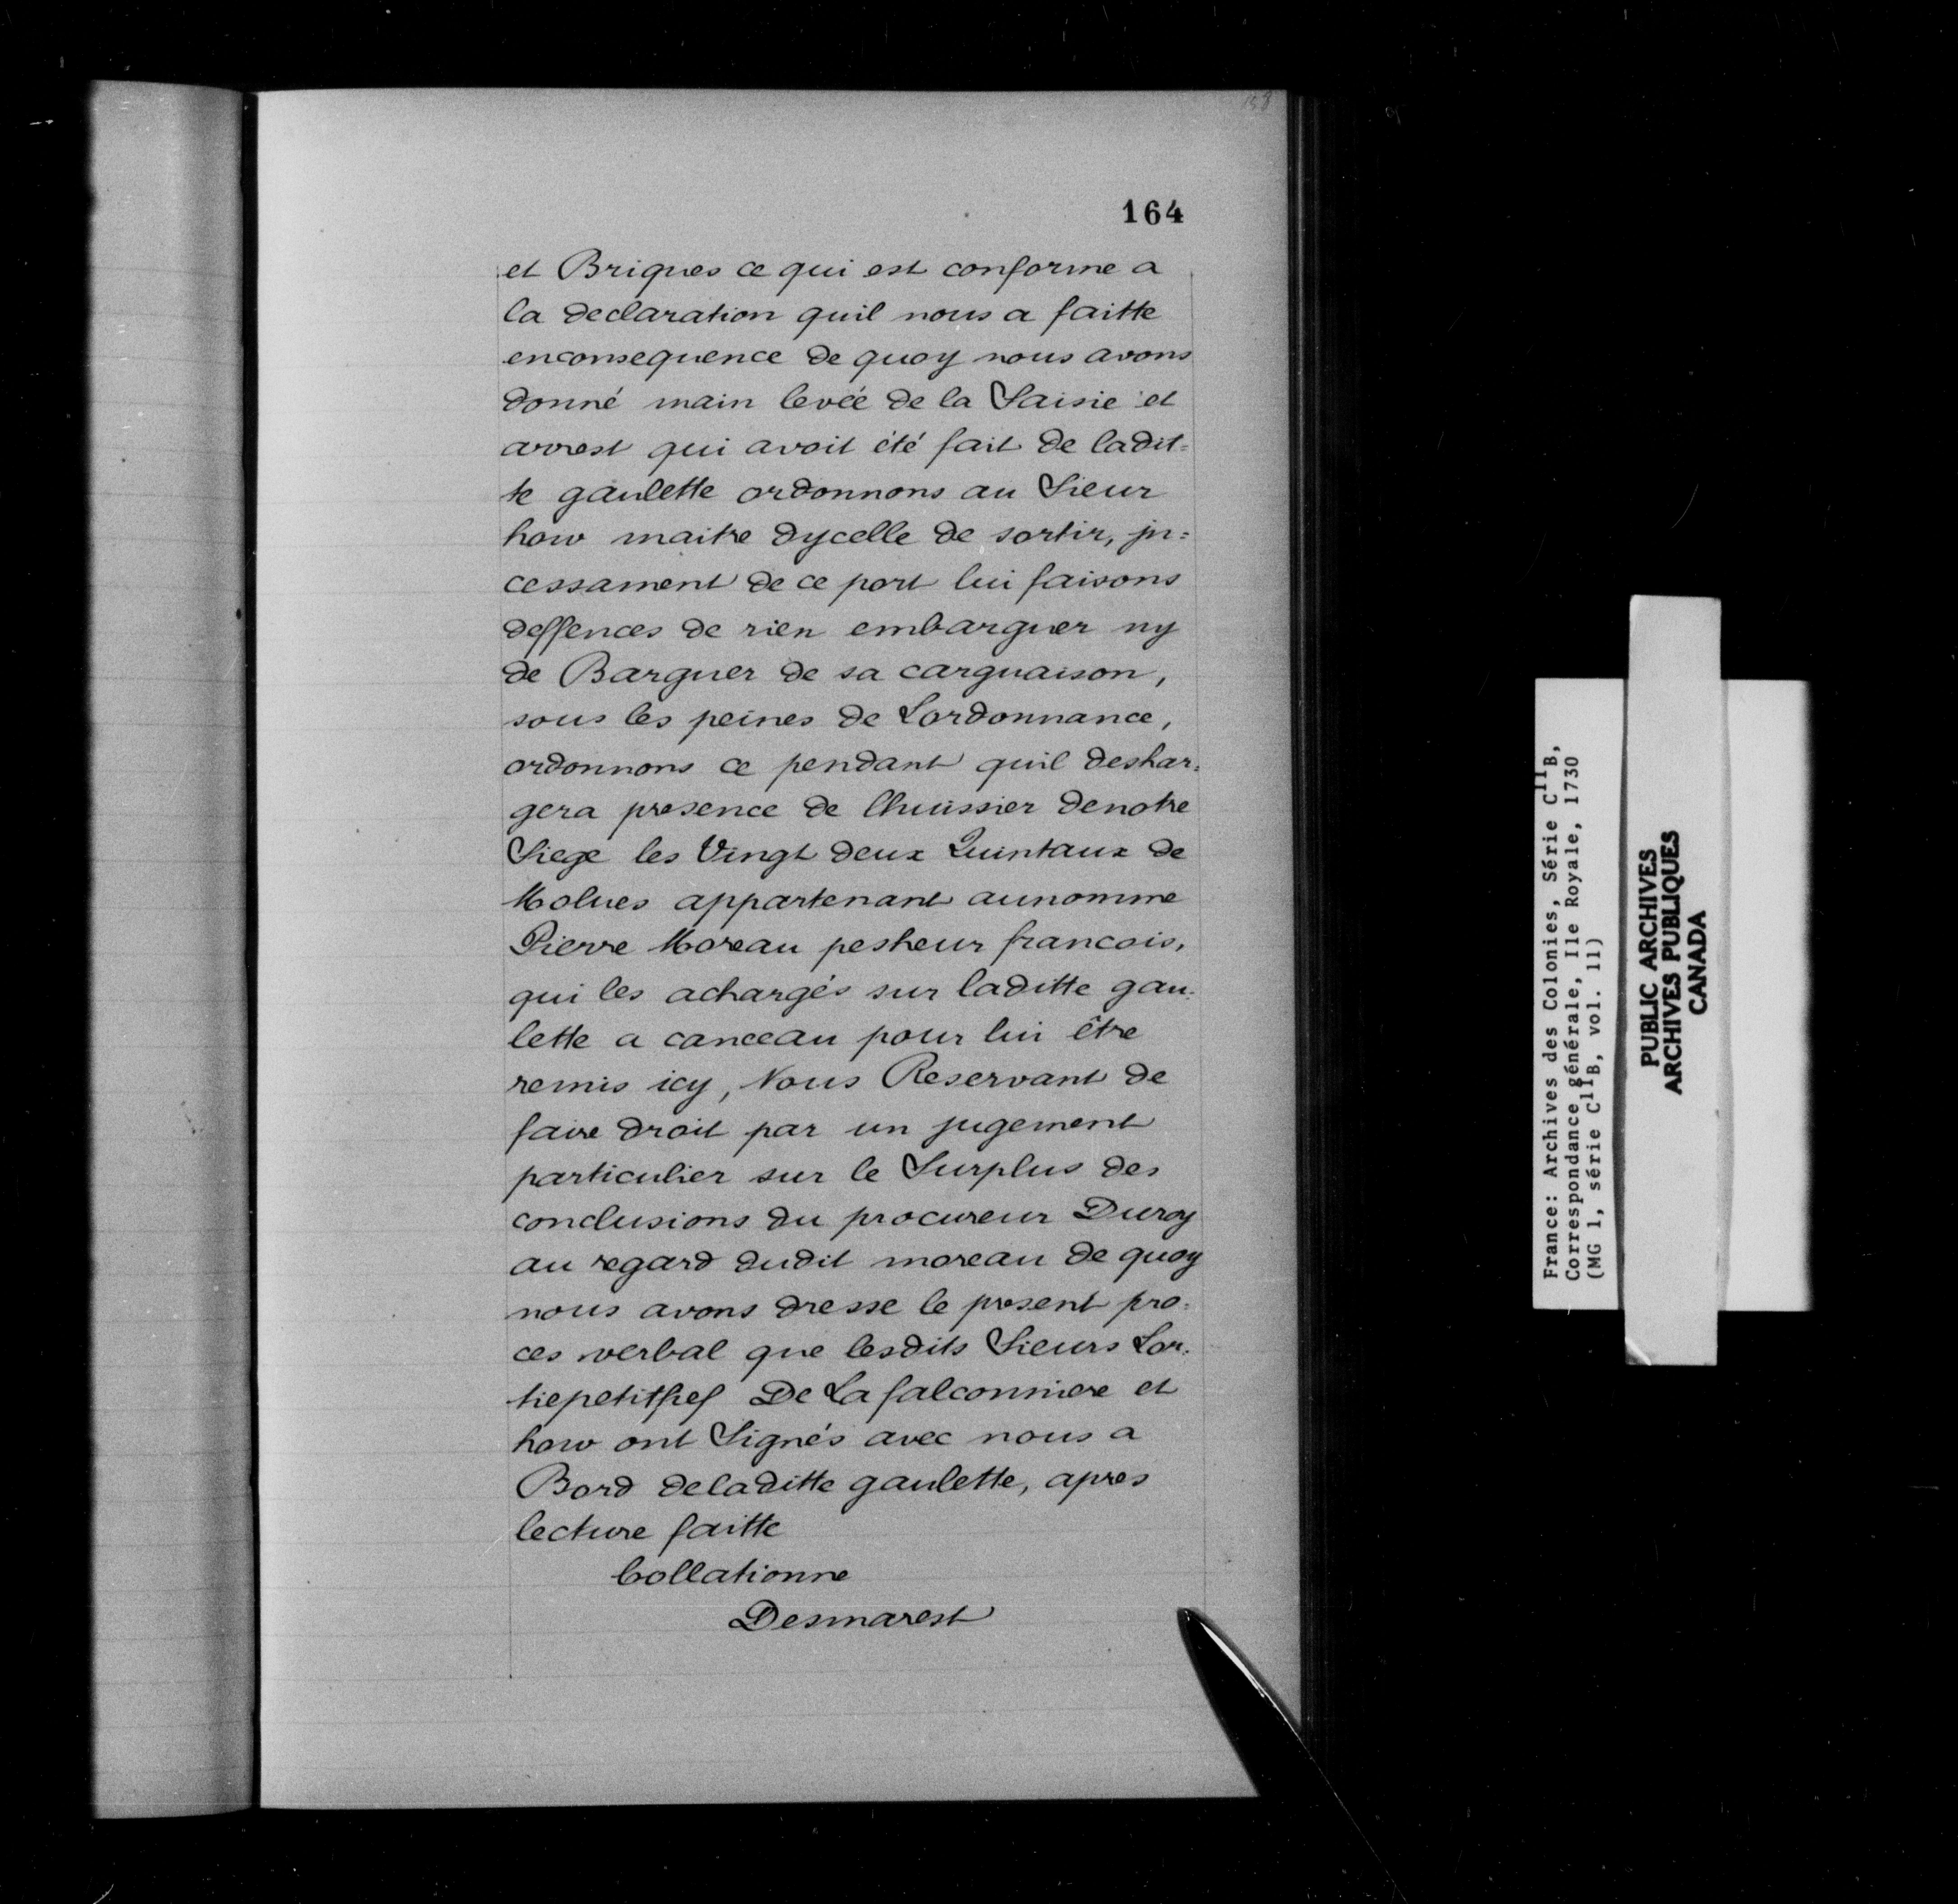 158
164
et Briques ce qui est conforme a
la declaration quil nous a faitte
enconsequence de quoy nous avons
donné main levée de la Saisie et
arrest qui avoit été fait de ladit=
te gaulette ordonnons au Sieur
how maitre dycelle de sortir, jn=
cessament de ce port lui faisons
deffences de rien embarguer ny
de Barguer de sa carguaison,
sous les peines de Lordonnance,
ordonnons ce pendant quil deshar=
gera presence de lhuissier denotre
Siege les Vingt deux Quintaux de
Molues appartenant aunomme
Pierre Moreau pesheur francois,
qui les achargés sur laditte gau=
lette a canceau pour lui être
remis icy, Nous Reservant de
faire droit par un jugement
particulier sur le Surplus des
conclusions du procureur Duroy
au regard dudit moreau de quoy
nous avons dresse le present pro=
ces verbal que lesdits Sieurs Lar=
tiepetitfief De La falconniere et
how ont Signés avec nous a
Bord deladitte gaulette, apres
lecture faitte
Collationne
Desmarest
France: Archives des Colonies, Série C11B,
Correspondance générale, Ile Royale, 1730
(MG 1, série C11B, vol. 11)
PUBLIC ARCHIVES
ARCHIVES PUBLIQUES
CANADA